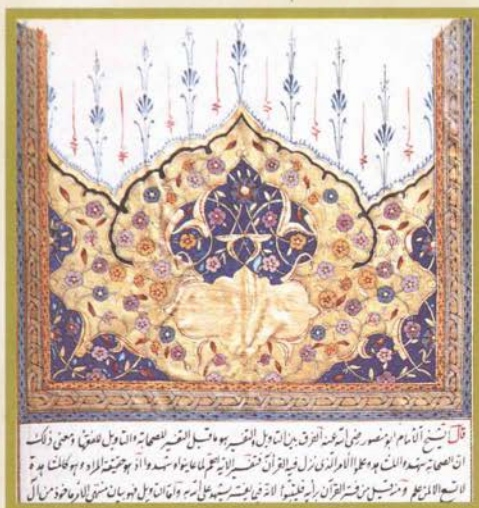 قال الشيخ الامام ابو منصور رضي الله عنه الفرق بين التاويل والتفسير هو ما قيل التفسير للصحابة والتاويل للفقهاء ومعنى ذلك
ان الصحابة شهدوا المشاهد وعلموا الامر الذي نزل فيه القرآن فتفسير الاية اهم لما عاينوا وشهدوا اذ هو حقيقة المراد وهو كالمشاهدة
لا تسع الا من علم ومنه قيل من فسر القرآن برأيه فليتبوأ لانه فيما يفسر يشهد على الله به واما التاويل فهو بيان منتهى الامر مأخوذ من آل